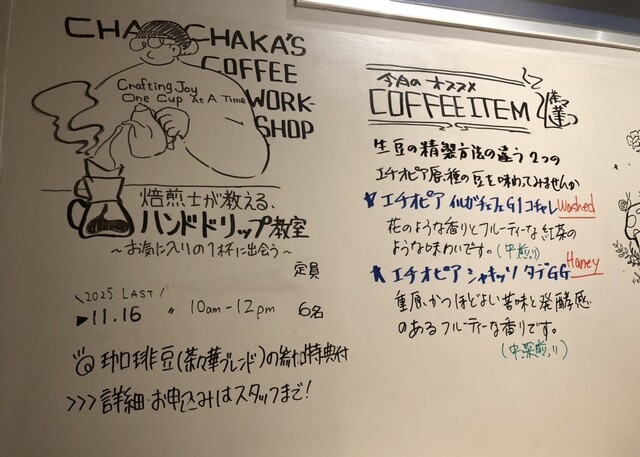 CHACHAKA'S
COFFEE
WORK-
SHOP
Crafting Joy
One Cup At A Time
焙煎士が教える、
ハンドドリップ教室
~お気に入りの1杯に出会う~
定員
\2025 LAST/
▶11.16 〃 10am-12pm 6名
珈琲豆(茶々華ブレンド)の参加特典付
>>>詳細・お申込みはスタッフまで!
今月のオススメ
COFFEE ITEM
生豆の精製方法の違う2つの
エチオピア原種の豆を味わってみませんか
エチオピア イルガチェフェG1コチャレ Washed
花のような香りとフルーティーな紅茶の
ような味わいです。(中煎り)
エチオピア シャキッソ タデGG Honey
重厚かつほどよい苦味と発酵感
のあるフルーティーな香りです。
(中深煎り)